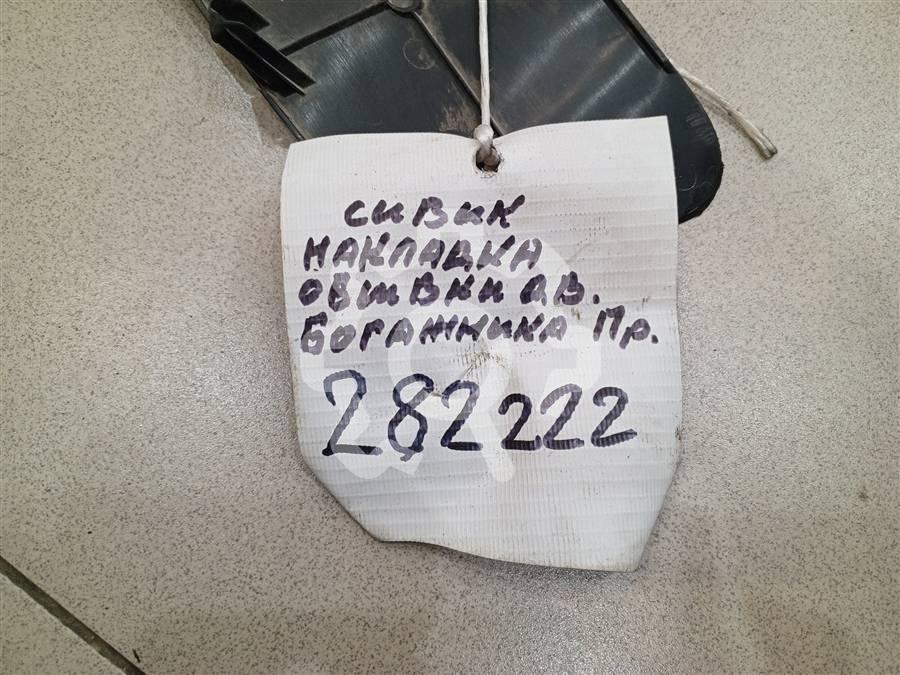 СИВИК
НАКЛАДКА
ОБШИВКИ ДВ.
БОГАЖНИКА Пр.
282222